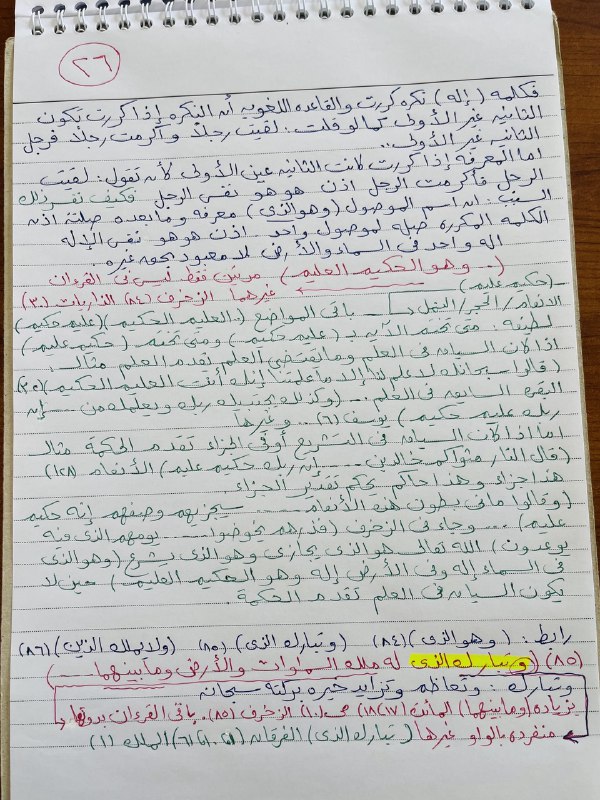 ٢٦
فكلمه (إله) نكره كررت والقاعده اللغويه أن النكره إذا كررت تكون
الثانيه غير الأولى كما لو قلت: لقيت رجلاً وأكرمت رجلاً فرجل
الثانيه غير الأولى..
اما المعرفه إذا كررت كانت الثانيه عين الأولى كأن تقول: لقيت
الرجل فأكرمت الرجل اذن هو هو نفس الرجل فكيف نفسر ذلك
السبب: ان اسم الموصول (وهو الذى) معرفه وما بعده صلة اذن
الكلمه المكرره صله لموصول واحد اذن هو هو نفس الإله
اله واحد فى السماء والأرض لا معبود بحق غيره.
(.. وهو الحكيم العليم) مرتين فقط ليس فى القرءان
غيرهما الزخرف (٨٤) الذاريات (٣٠)
- (حكيم عليم)
الانعام/الحجر/النمل باقى المواضع (العليم الحكيم)(عليم حكيم)
لطيفه: متى تختم الآيه بـ (عليم حكيم) ومتى تختم (حكيم عليم)
اذا كان السياق فى العلم وما يقتضى العلم تقدم العلم مثال:
(قالوا سبحانك لا علم لنا إلا ما علمتنا إنك أنت العليم الحكيم)(٣٢)
البقره السابقه فى العلم... (وكذلك يجتبيك ربك ويعلمك من .... إن
ربك عليم حكيم) يوسف (٦) .. وغيرها
اما اذا كان السياق فى التشريع أو فى الجزاء تقدم الحكمة مثال
(قال النار مثواكم خالدين ..... إن ربك حكيم عليم) الأنعام (١٢٨)
هذا جزاء وهذا حاكم يحكم تقدير الجزاء
(وقالوا ما فى بطون هذه الأنعام ..... سيجزيهم وصفهم إنه حكيم
عليم) ... وجاء فى الزخرف (فذرهم يخوضوا .... يومهم الذى
يوعدون) الله تعالى هو الذى يجازى وهو الذى يشرع (وهو الذى
فى السماء إله وفى الأرض إله وهو الحكيم العليم) حين لا
يكون السياق فى العلم تقدم الحكمة.
رابط: (وهو الذى) (٨٤) (وتبارك الذى) (٨٥) (ولا يملك الذين) (٨٦)
(٨٥) (وتبارك الذى له ملك السماوات والأرض وما بينهما ......)
وتبارك: وتعاظم وتزايد خيره بركته سبحانه
بزياده (وما بينهما) المائده (١٧)(١٨) ص (١٠) الزخرف (٨٥). باقى القرءان بدونها
منفرده بالواو غيرها (تبارك الذى) الفرقان (١، ١٠، ٦١) الملك (١)